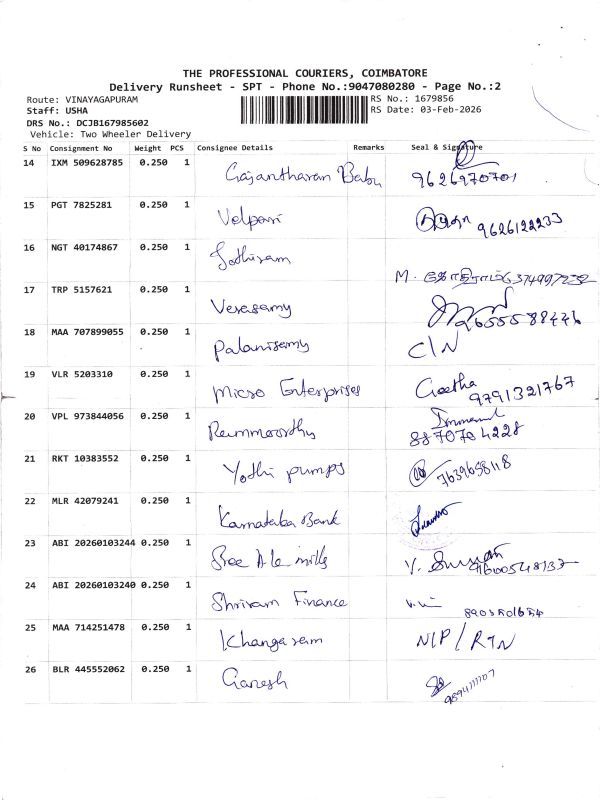 THE PROFESSIONAL COURIERS, COIMBATORE
Delivery Runsheet - SPT - Phone No.:9047080280 - Page No.:2
Route: VINAYAGAPURAM
RS No.: 1679856
Staff: USHA
RS Date: 03-Feb-2026
DRS No.: DCJB167985602
Vehicle: Two Wheeler Delivery
S No Consignment No Weight PCS Consignee Details Remarks Seal & Signature
14 IXM 509628785 0.250 1 Gajantharan Babu 9626970701
15 PGT 7825281 0.250 1 Velpari 9626122233
16 NGT 40174867 0.250 1 Jothiram
M.
17 TRP 5157621 0.250 1 Verasamy
18 MAA 707899055 0.250 1 Palanisamy C/N
19 VLR 5203310 0.250 1 Micro Enterprises Geetha
9791321767
20 VPL 973844056 0.250 1 Rammoorthy
8870704228
21 RKT 10383552 0.250 1 Yothi pumps 7639658118
22 MLR 42079241 0.250 1 Karnataka Bank
23 ABI 20260103244 0.250 1 Sree mills
24 ABI 20260103240 0.250 1 Shriram Finance
25 MAA 714251478 0.250 1 Khangaram N/P/RTN
26 BLR 445552062 0.250 1 Ganesh